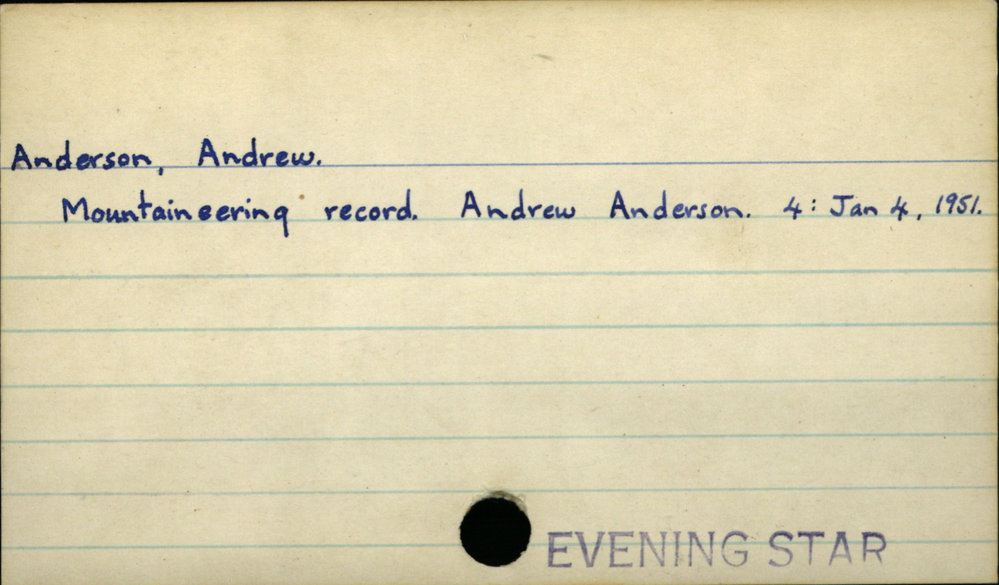 Anderson, Andrew.
Mountaineering record. Andrew Anderson. 4: Jan 4, 1951.
EVENING STAR